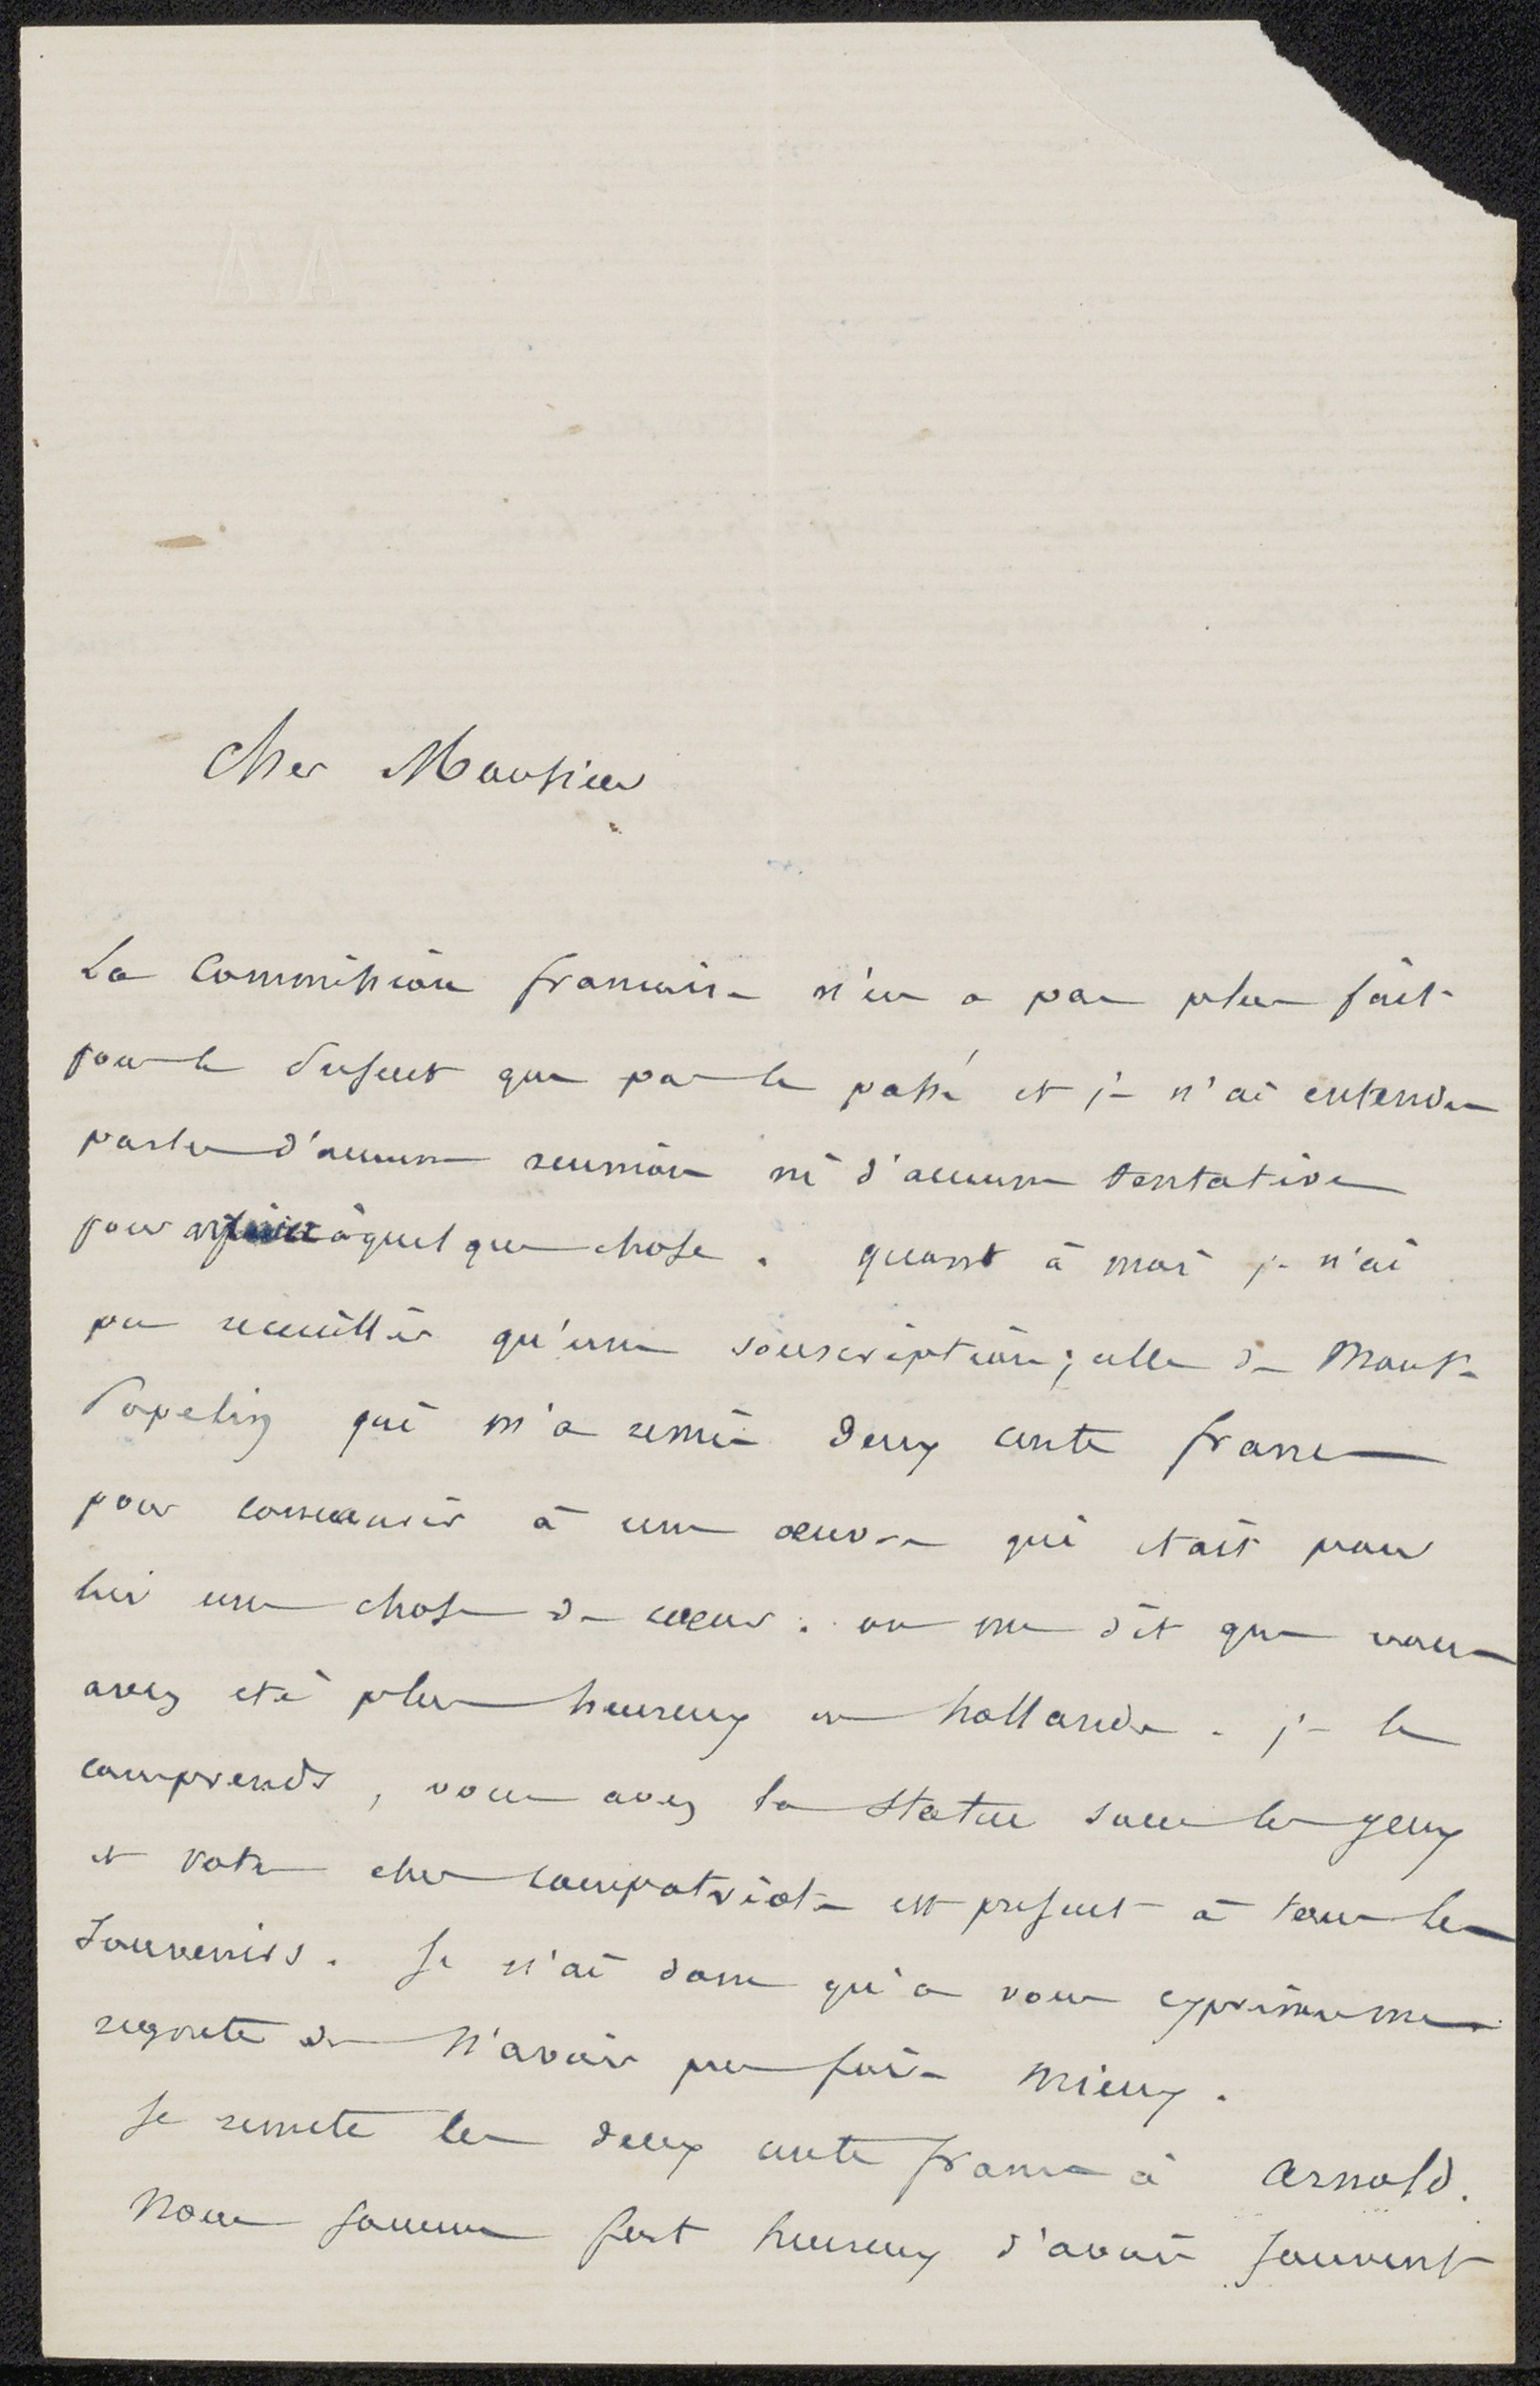 AA
Cher Monsieur
La Commission francaise n'en a pas plus fait
pour le present que par le passé et je n'ai entendu
parler d'aucune reunion ni d'aucune tentative
pour à quelque chose. quant à moi je n'ai
pu recueillir qu'une souscription; celle de Monsr
Popelin qui m'a remis deux cents francs
pour concourir à une oeuvre qui etait pour
lui une chose de coeur. on me dit que vous
avez eté plus heureux en hollande. je le
comprends, vous avez la statue sous les yeux
et votre cher compatriote est present à tous les
souvenirs. Je n'ai donc qu'a vous exprimer mes
regrets de n'avoir pu faire mieux.
Je remets les deux cents francs à Arnold.
Nous sommes fort heureux d'avoir souvent